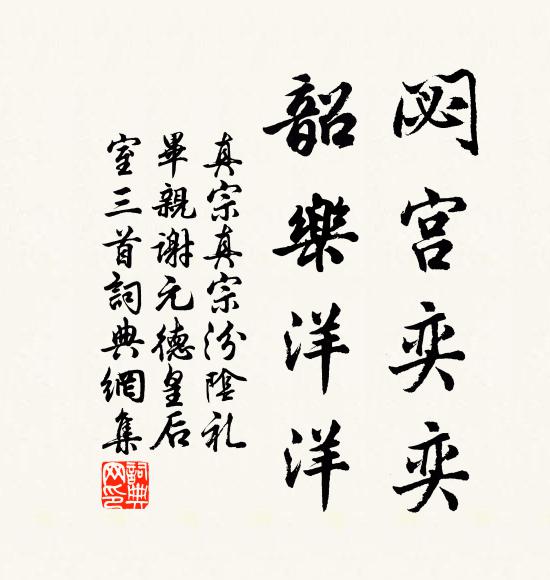 閟宮奕奕
韶樂洋洋
真宗真宗汾陰礼
畢親謝元德皇后
室三首詞典網集
詞典網印